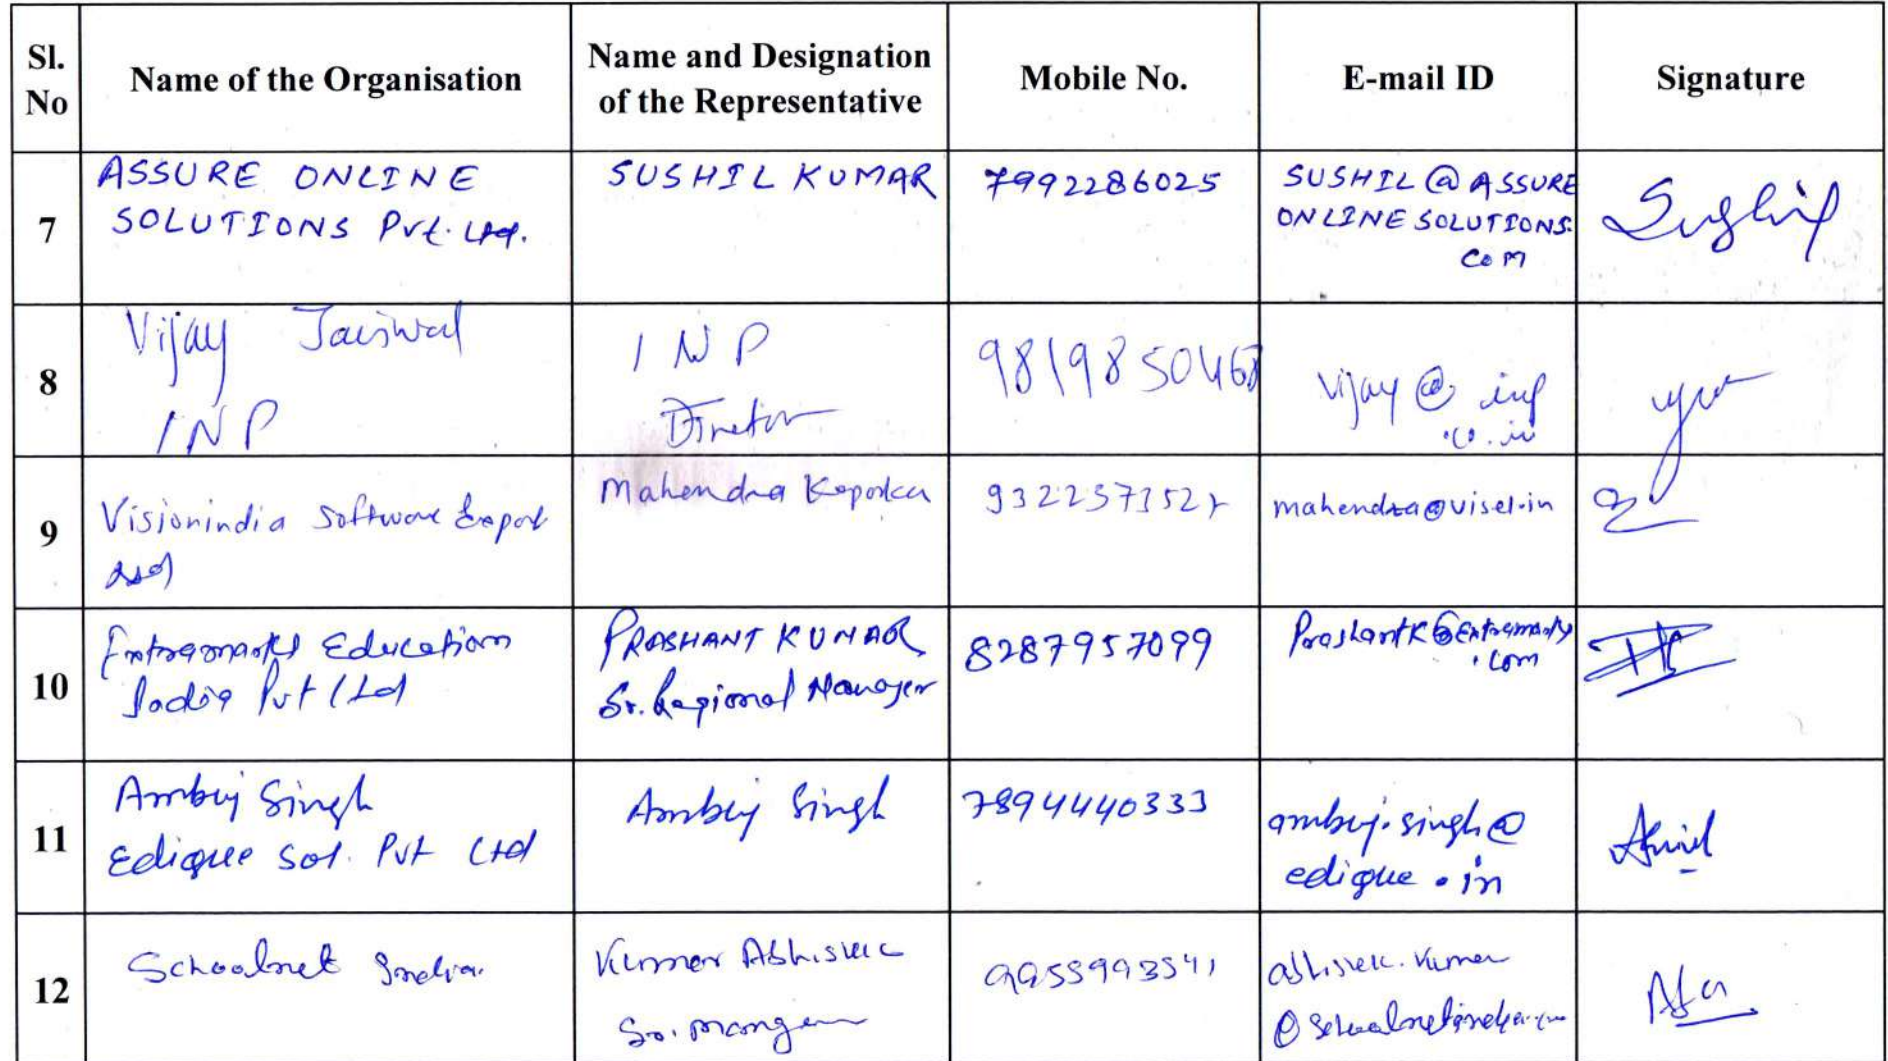 Sl. No
Name of the Organisation
Name and Designation of the Representative
Mobile No.
E-mail ID
Signature
7
ASSURE ONLINE
SOLUTIONS Pvt. Ltd.
SUSHIL KUMAR
7992286025
SUSHIL@ASSURE
ONLINESOLUTIONS.
COM
Sushil
8
Vijay Jaiswal
INP
INP
Director
9819850468
vijay@inp
.co.in
9
Visionindia Software Export
Ltd
Mahendra
mahendra@visel.in
10
Extramarks Education
India Pvt Ltd
PRASHANT KUMAR
Sr. Regional Manager
8287957099
PrashantK@Extramarks
.com
11
Ambuj Singh
Edique Sol. Pvt Ltd
Ambuj Singh
7894440333
ambuj.singh@
edique.in
12
Schoolnet India
Kumar Abhishek
Sr. Manager